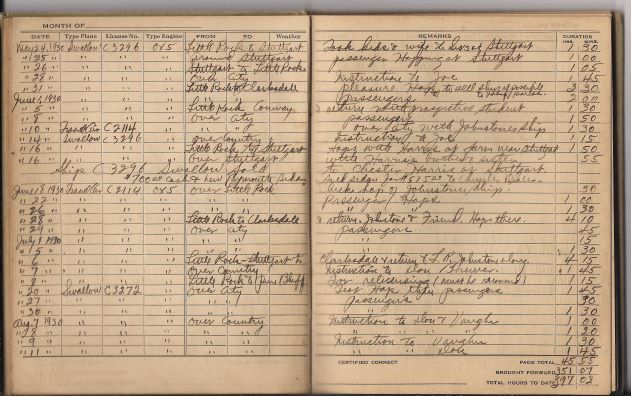 MONTH OF
DATE Type Plane License No. Type Engine FROM TO Weather
May 24, 1930 Swallow C3296 OX5 Little Rock to Stuttgart
" 25 " " " " Around Stuttgart
" 26 " " " " Stuttgart to Little Rock
" 28 " " " " Over City
" 31 " " " " Little Rock to Clarksdale
June 1, 1930 " " "
" 5 " " " " Little Rock Conway
" 8 " " " " Over City
" 10 Travelair C2114 " " "
" 14 Swallow C3296 " over Country
" 16 " " " " Little Rock to Stuttgart
" 16 " " " " Over Stuttgart
Ship C3296 Swallow Sold
$700.00 Cash & new Plymouth Sedan
June 18 1930 Travelair C2114 OX5 over Little Rock
" 22 " " " "
" 26 " " " "
" 28 " " " Little Rock to Clarksdale
" 29 " " " over City
July 1 1930 " " " "
" 5 " " " "
" 6 " " " Little Rock - Stuttgart &
" 7 " " " Over Country
" 8 " " " Little Rock to Pine Bluff
" 20 Swallow C3272 " Over City
" 27 " " " "
" 30 " " " "
Aug. 7 1930 " " " over Country
" 8 " " " "
" 9 " " " "
" 11 " " " "
REMARKS DURATION HRS. MINS.
Took & wife to Stuttgart 1 30
passenger Hopping at Stuttgart 1 00
" " 1 05
Instruction to Joe 1 45
pleasure Hopping to sell ship 2 30
passengers 2 00
& return with prospective student 30
passengers 1 50
over City with Johnston's ship 1 30
Instruction to Joe 1 15
Hops with Harris at farm near Stuttgart 1 50
with Harris brother & sister 55
to Chester Harris of Stuttgart
check hop of Johnston ship. 30
Passenger Hops 1 00
" " 1 30
& return. Johnston & Friend. Hops there. 4 10
passengers 45
" 15
" 1 30
Clarksdale & return & L.R. Johnston along 4 15
Instruction to Don 1 45
For relicensing 1 15
Test hop then passengers 1 45
Passengers 30
" 1 30
Instruction to Don & Vaughn 1 00
" " " 1 20
Instruction to Vaughn 1 30
" " Don 1 45
CERTIFIED CORRECT PAGE TOTAL 45 55
BROUGHT FORWARD 351 07
TOTAL HOURS TO DATE 397 02